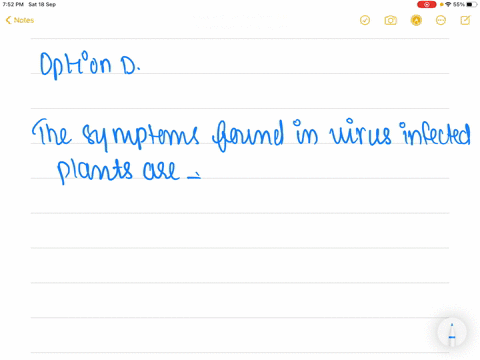 7:52 PM Sat 18 Sep
55%
Notes
Option D.
The symptoms found in virus infected
plants are -